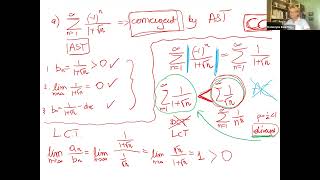 a) ∑_{n=1}^{∞} (-1)^n / (1+√n) ⟹ convergent by AST
CC
AST
1. b_n = 1/(1+√n) > 0 ✓
2. lim_{n→∞} 1/(1+√n) = 0 ✓
3. b_n = 1/(1+√n) - dec ✓
∑_{n=1}^{∞} |(-1)^n / (1+√n)| = ∑_{n=1}^{∞} 1/(1+√n)
∑_{n=1}^{∞} 1/(1+√n) < ∑ 1/√n
AC
∑_{n=1}^{∞} 1/√n
p=1/2<1
diverges
DCT
LCT
LCT
lim_{n→∞} a_n/b_n = lim_{n→∞} (1/(1+√n)) / (1/√n) = lim_{n→∞} √n/(1+√n) = 1 > 0